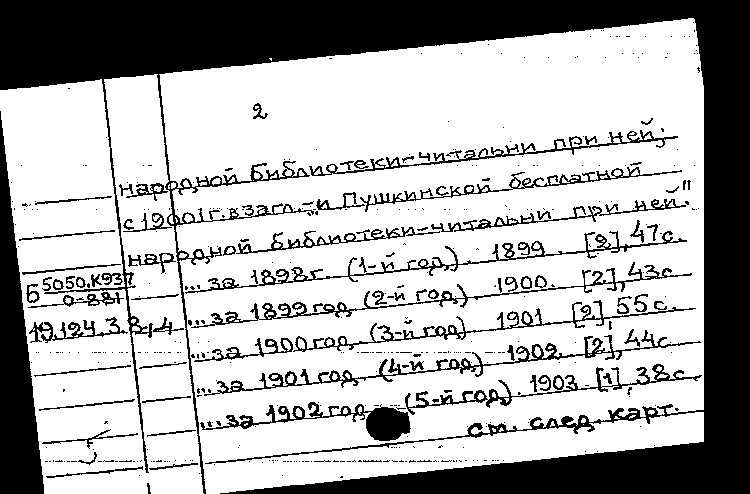 2
народной библиотеки-читальни при ней;
с 19001 г. в загл. - "и Пушкинской бесплатной
народной библиотеки-читальни при ней."
Б 5050.К937
0-881
...за 1898 г. (1-й год). 1899. [2], 47 с.
19.124.3.8,4
...за 1899 год (2-й год). 1900. [2], 43 с
...за 1900 год (3-й год) 1901 [2] 55 с.
...за 1901 год (4-й год) 1902. [2], 44 с
...за 1902 год (5-й год). 1903 [1], 38 с.
см. след. карт.